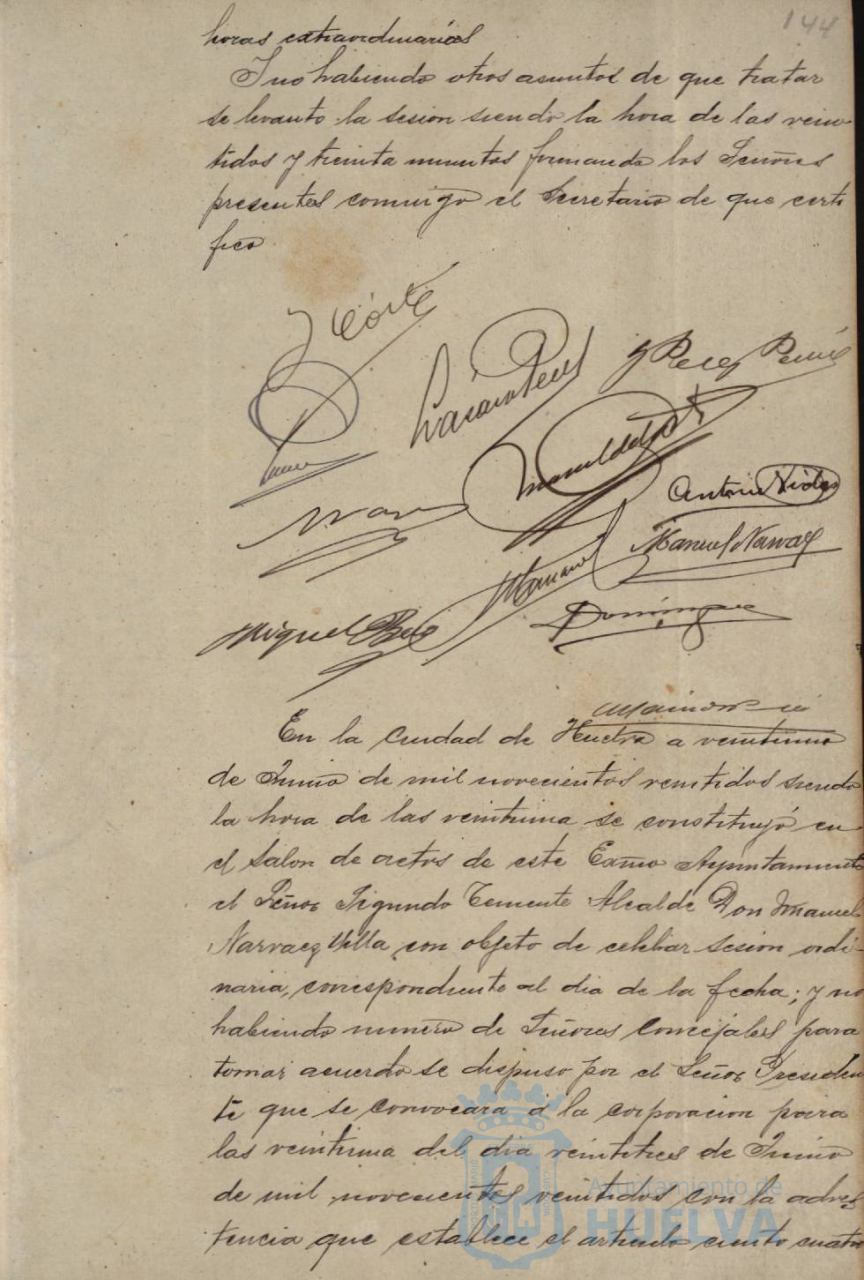 144
horas extraordinarias
Y no habiendo otros asuntos de que tratar
se levanto la sesion siendo la hora de las vein-
tidos y treinta minutos firmando los Señores
presentes conmigo el Secretario de que certi
fico
Antonio Vides
Manuel Narvaez
Miguel
Dominguez
En la Ciudad de Huelva a veintiuno
de Junio de mil novecientos veintidos siendo
la hora de las veintiuna se constituyó en
el salon de actos de este Excmo Ayuntamiento
el Señor Segundo Teniente Alcalde Don Manuel
Narvaez Villa con objeto de celebrar sesion ordi-
naria, correspondiente al dia de la fecha; y no
habiendo numero de Señores Concejales para
tomar acuerdo se dispuso por el Señor Presiden
te que se convocara á la corporacion para
las veintiuna del dia veintitres de Junio
de mil novecientos veintidos con la adver
tencia que establece el articulo ciento cuatro
Ayuntamiento de
HUELVA